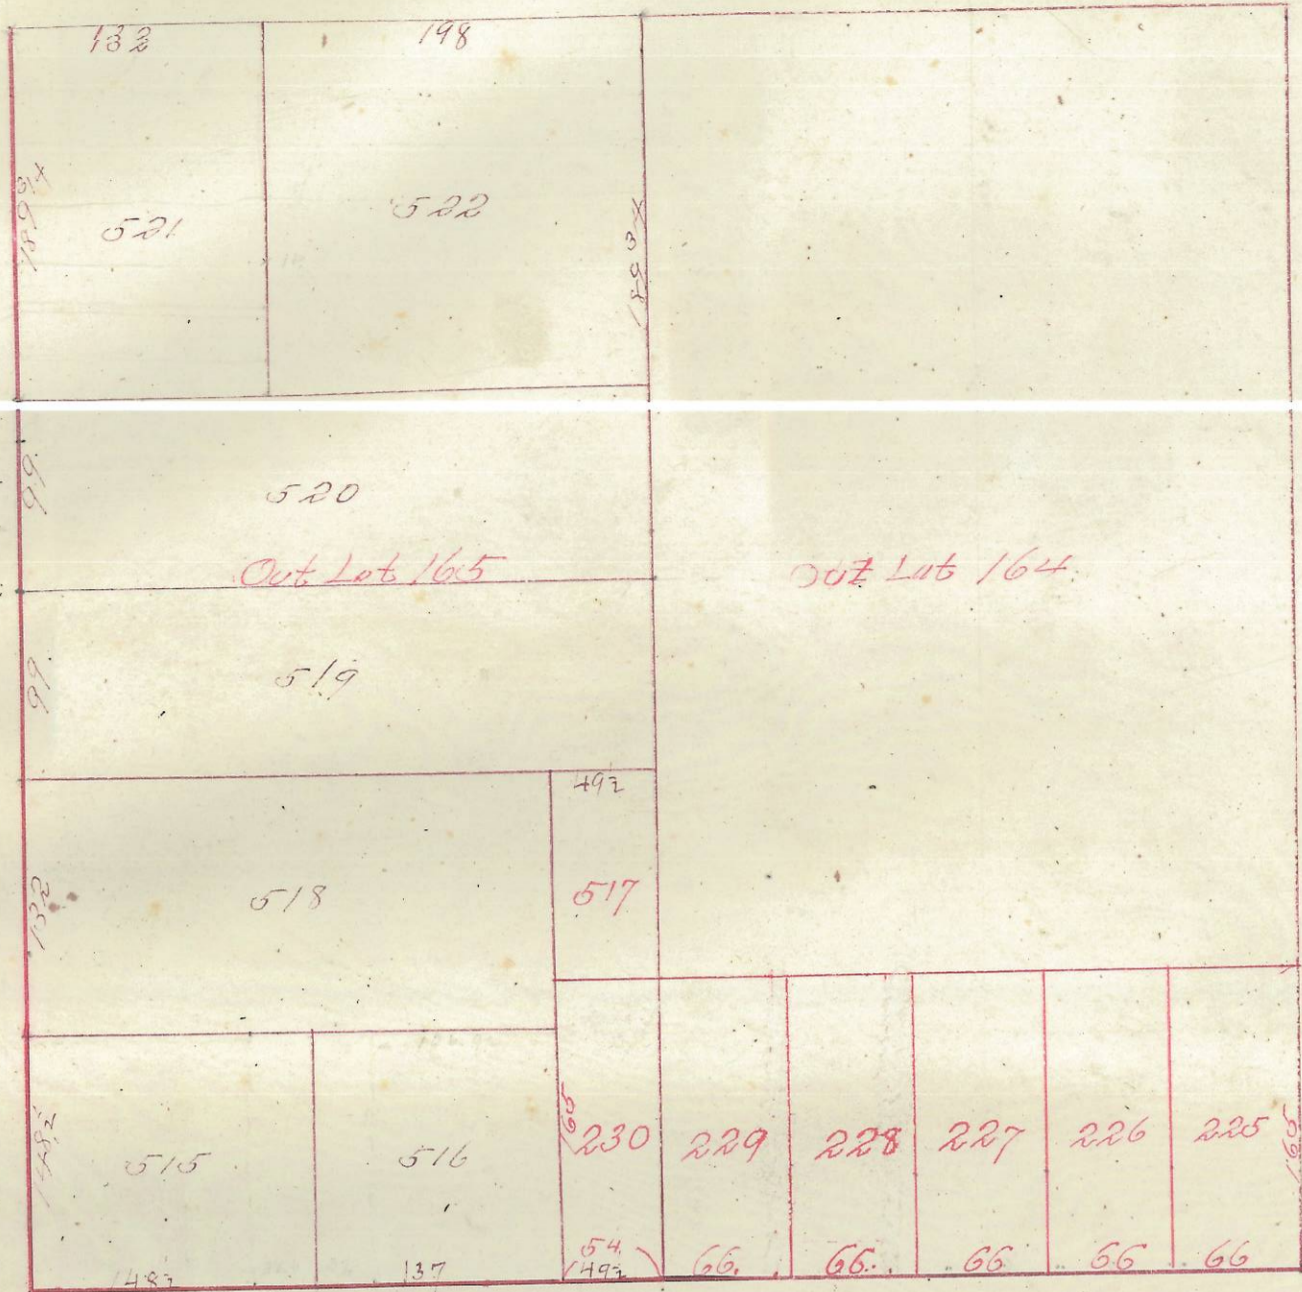 132
198
189 3/4
521
522
189 3/4
99.
520
Out Lot 165
Out Lot 164
99.
519
49½
132
518
517
148½
515
516
165
230
229
228
227
226
225
165
148½
137
54
49½
66.
66.
66
66
66